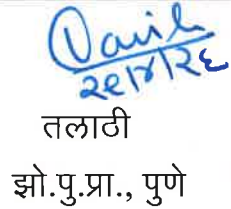 २९/४/२६
तलाठी
झो.पु.प्रा., पुणे